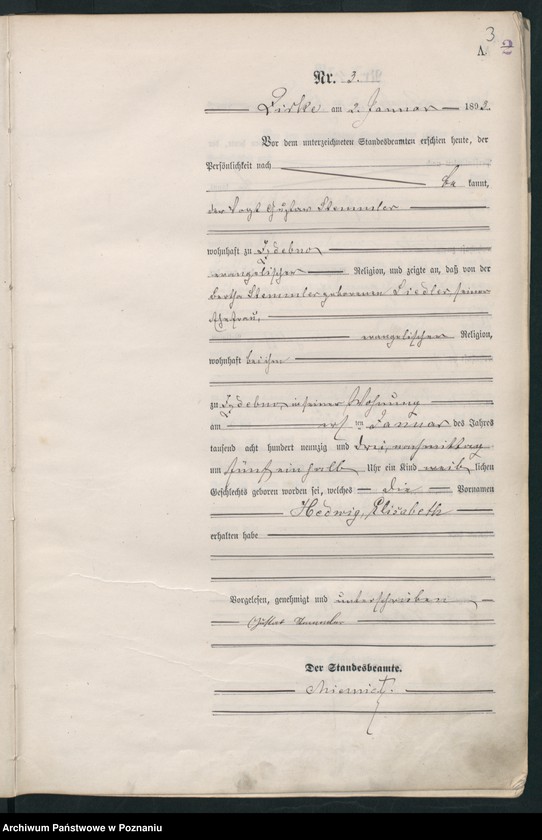 3
A 2
Nr. 3.
Zirke am 2. Januar 1893.
Vor dem unterzeichneten Standesbeamten erschien heute, der
Persönlichkeit nach
be kannt,
der Vogt Gustav Stemmler
wohnhaft zu
evangelischer Religion, und zeigte an, daß von der
Bertha Stemmler geborenen Fiedler, seiner
Ehefrau,
evangelischer Religion,
wohnhaft bei ihm
zu in seiner Wohnung
am ersten Januar des Jahres
tausend acht hundert neunzig und drei, nachmittag
um fünf einhalb Uhr ein Kind weib lichen
Geschlechts geboren worden sei, welches die Vornamen
Hedwig, Elisabeth
erhalten habe
Vorgelesen, genehmigt und unterschrieben
Gustav Stemmler
Der Standesbeamte.
Archiwum Państwowe w Poznaniu